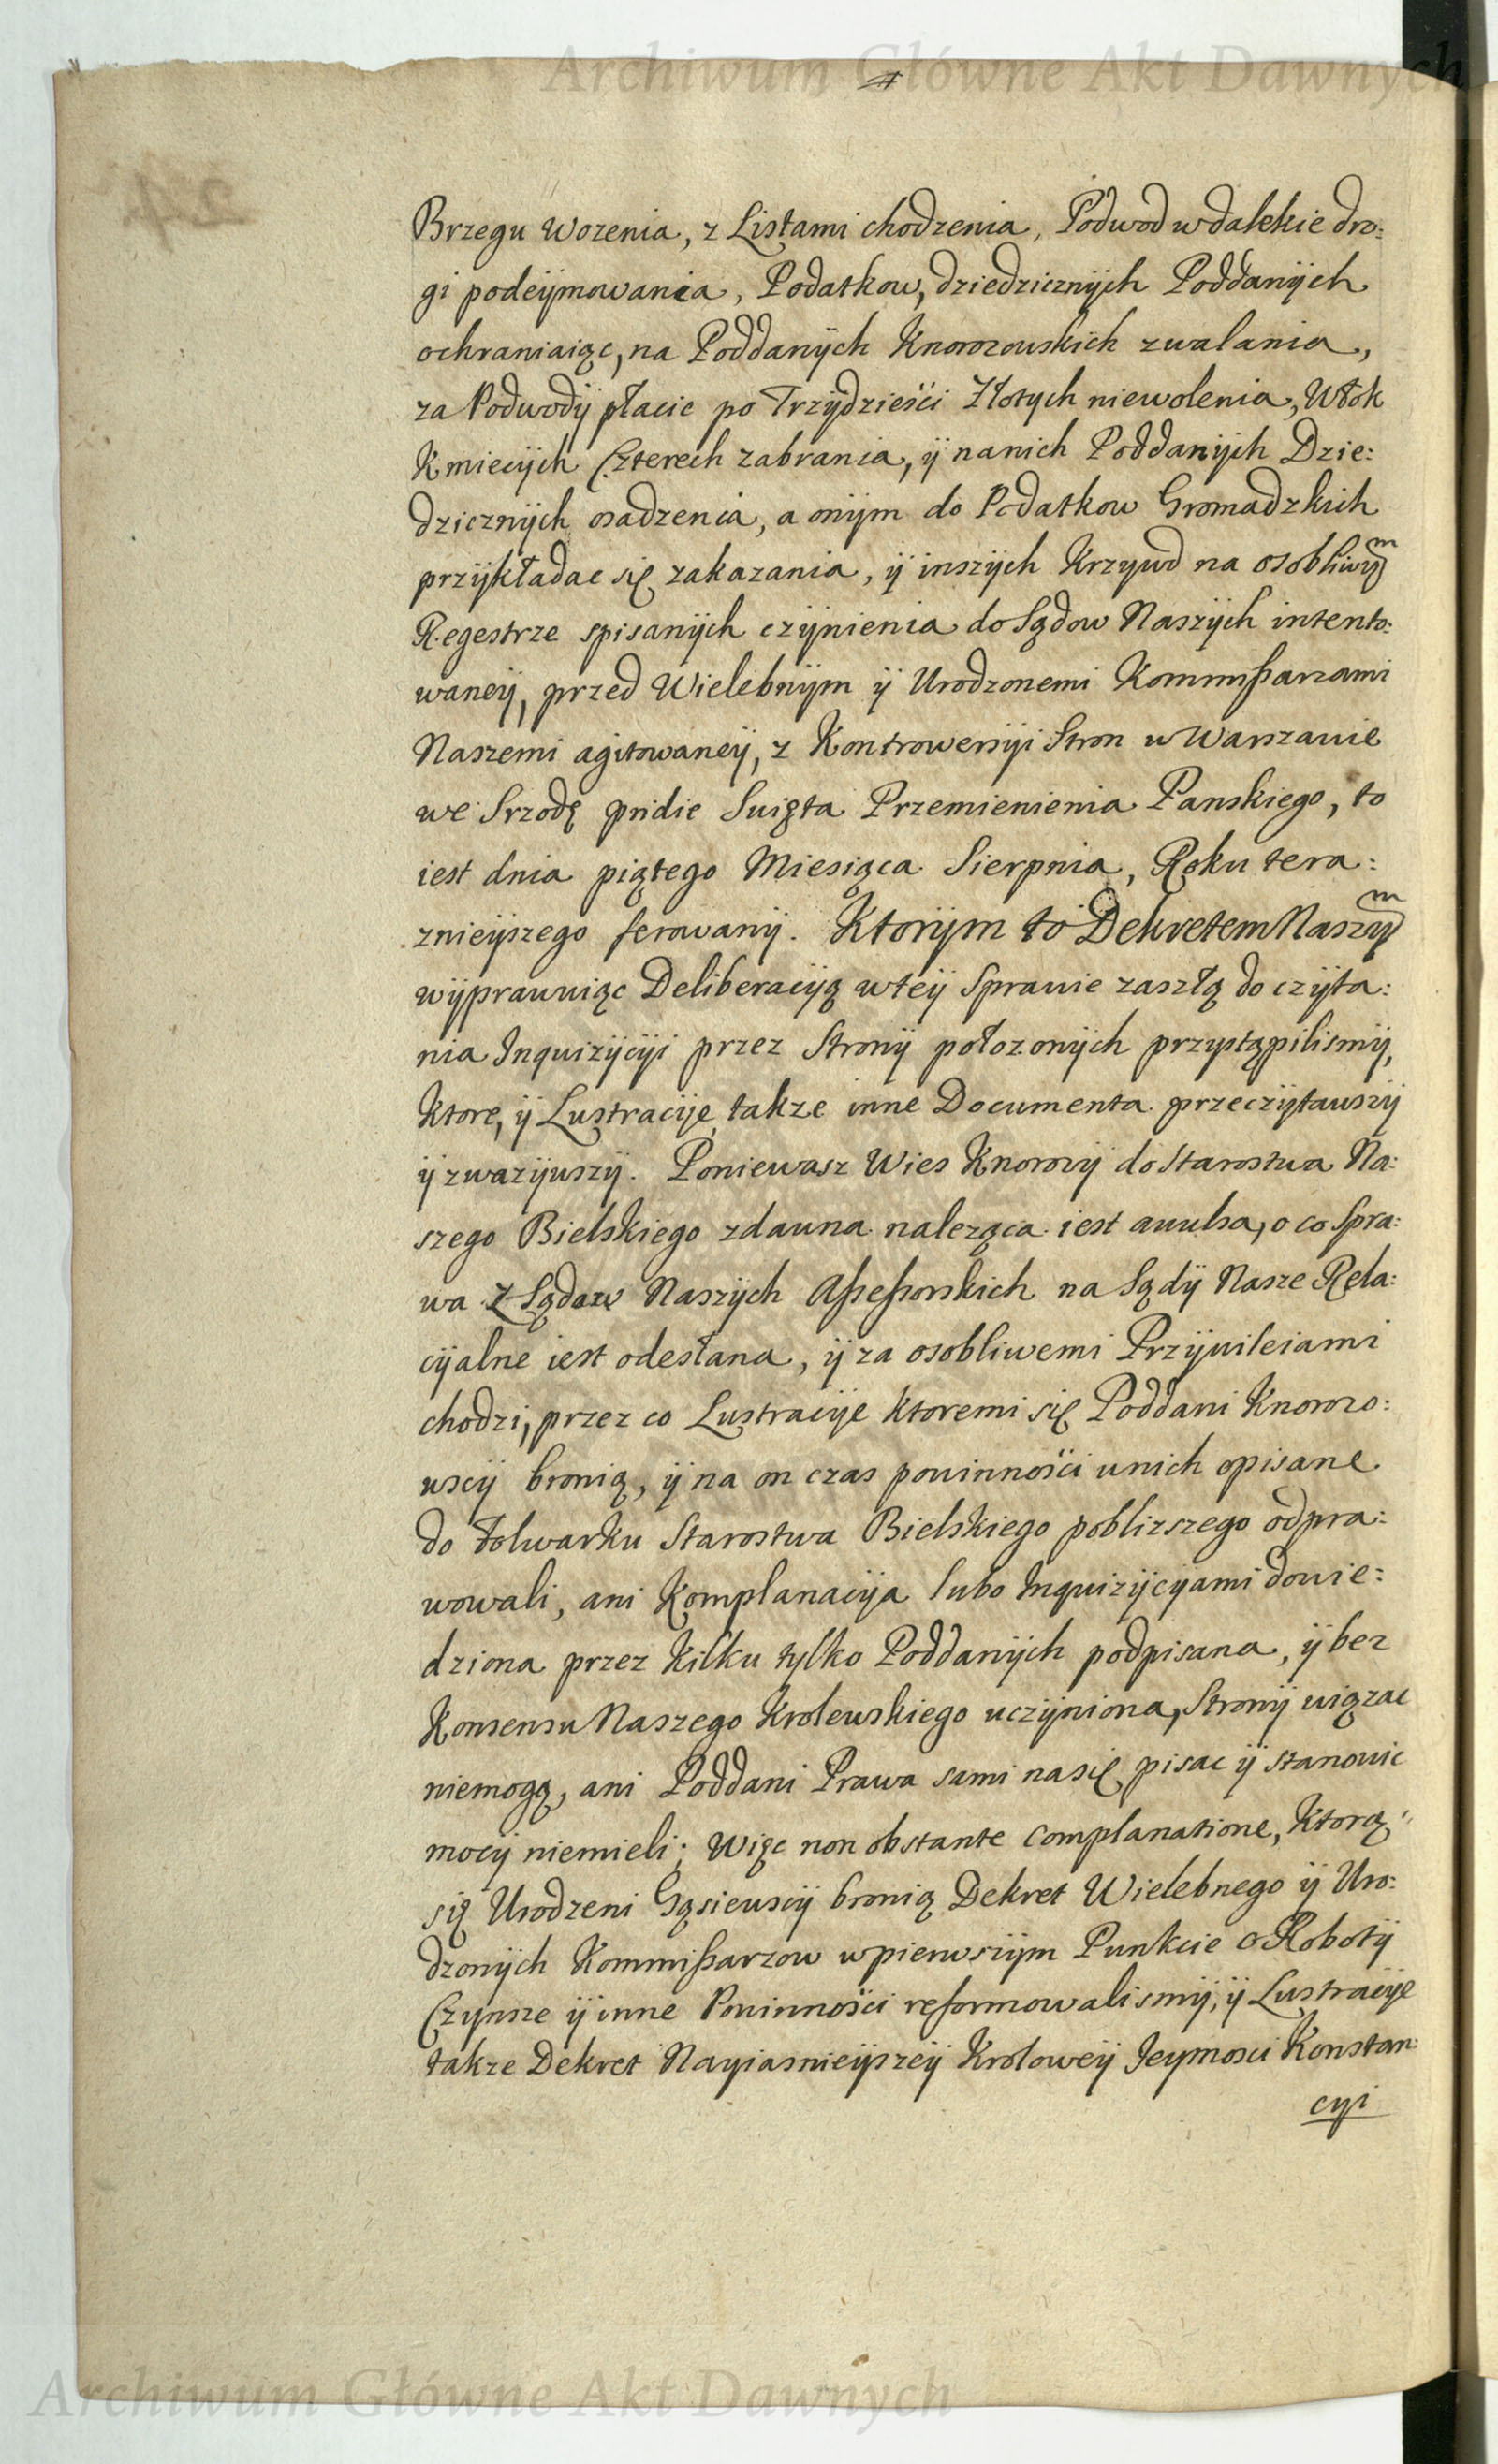 Archiwum Główne Akt Dawnych
#
24.
Brzegu wozenia, z Listami chodzenia, Podwod w dalekie dro:
gi podeÿmowania, Podatkow, dziedzicznÿch Poddanÿch
ochraniaiąc, na Poddanÿch Knorozowskich zwalania,
za Podwodÿ płacic po Trzÿdzieści Złotych niewolenia, Włok
Kmiecÿch Czterech zabrania, ÿ na nich Poddanÿch Dzie:
dzicznÿch osadzenia, a onÿm do Podatkow Gromadzkich
przÿkładac się zakazania, ÿ inszÿch Krzywd na osobliwÿm
Regestrze spisanÿch czÿnienia do Sądow Naszÿch intento:
waneÿ, przed Wielebnÿm ÿ Urodzonemi Kommißarzami
Naszemi agitowaneÿ, z Kontrowersÿi Stron w Warszawie
we Srzodę pridie Swięta Przemienienia Panskiego, to
iest dnia piątego Miesiąca Sierpnia, Roku tera:
znieÿszego ferowanÿ. Ktorÿm to Dekretem Naszÿm
wÿprawuiąc Deliberacÿą w teÿ Sprawie zaszłą do czÿta:
nia Inquizÿcÿi przez Stronÿ położonÿch przystąpilismÿ,
Ktore, ÿ Lustracÿe, takze inne Documenta przeczÿtawszÿ
ÿ zwazÿwszÿ. Poniewasz Wies Knorozÿ do Starostwa Na:
szego Bielskiego zdawna naleząca iest awulsa, o co Spra:
wa z Sądow Naszÿch Aßeßorskich na Sądÿ Nasze Rela:
cÿalne iest odesłana, ÿ za osobliwemi Przÿwileiami
chodzi, przez co Lustracÿe ktoremi się Poddani Knorozo:
wscÿ bronią, ÿ na on czas powinności w nich opisane
do folwarku Starostwa Bielskiego poblizszego odpra:
wowali, ani Komplanacÿa lubo Inquizÿcÿami dowie:
dziona przez kilku tylko Poddanÿch podpisana, ÿ bez
Konsensu Naszego Krolewskiego uczÿniona, Stronÿ wiązac
niemogą, ani Poddani Prawa sami na się pisac ÿ stanowic
mocÿ niemieli; Więc non obstante complanatione, Ktorą
się Urodzeni Gąsiewscÿ bronią Dekret Wielebnego ÿ Uro:
dzonÿch Kommißarzow w pierwszÿm Punkcie o Robotÿ
Czynsze ÿ inne Powinności reformowalismÿ, ÿ Lustracÿe
takze Dekret Nayiasnieÿszeÿ Kroloweÿ Jeymosci Konstan:
cyi
Archiwum Główne Akt Dawnych